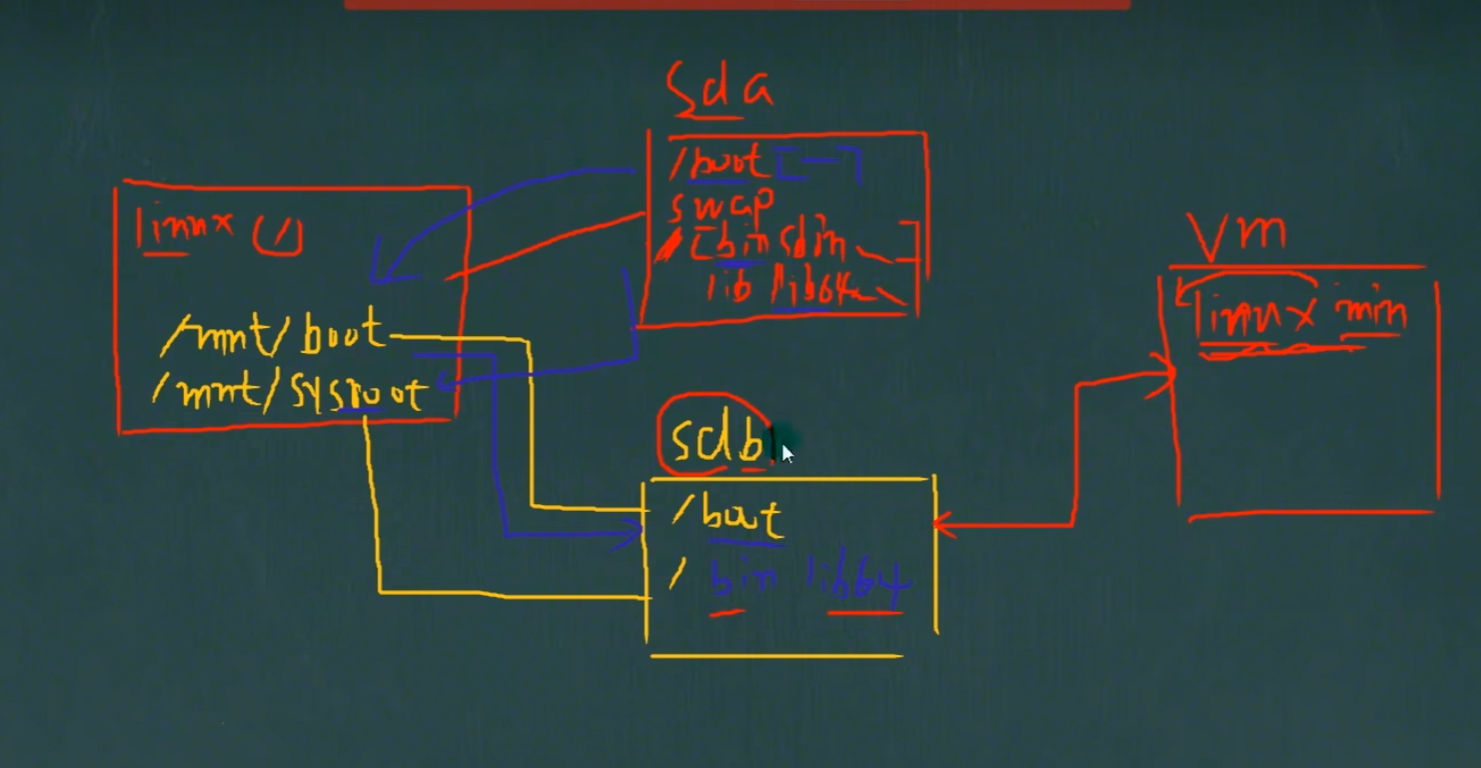 linux (/)
/mnt/boot
/mnt/sysroot
sda
/boot [—]
swap
/ [bin sbin
lib lib64
sdb
/boot
/ bin lib64
Vm
linux min